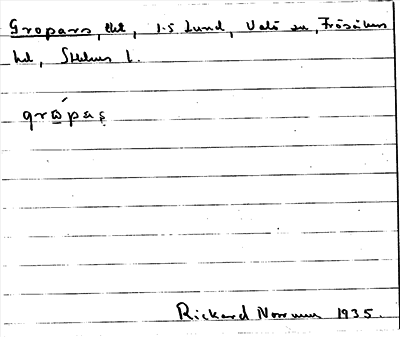 Gropars, tkt, 1.5 Lund, Valö sn, Frösåkers
hd, Sthlms l.
grɷ́pas̨
Rickard Norrman 1935.